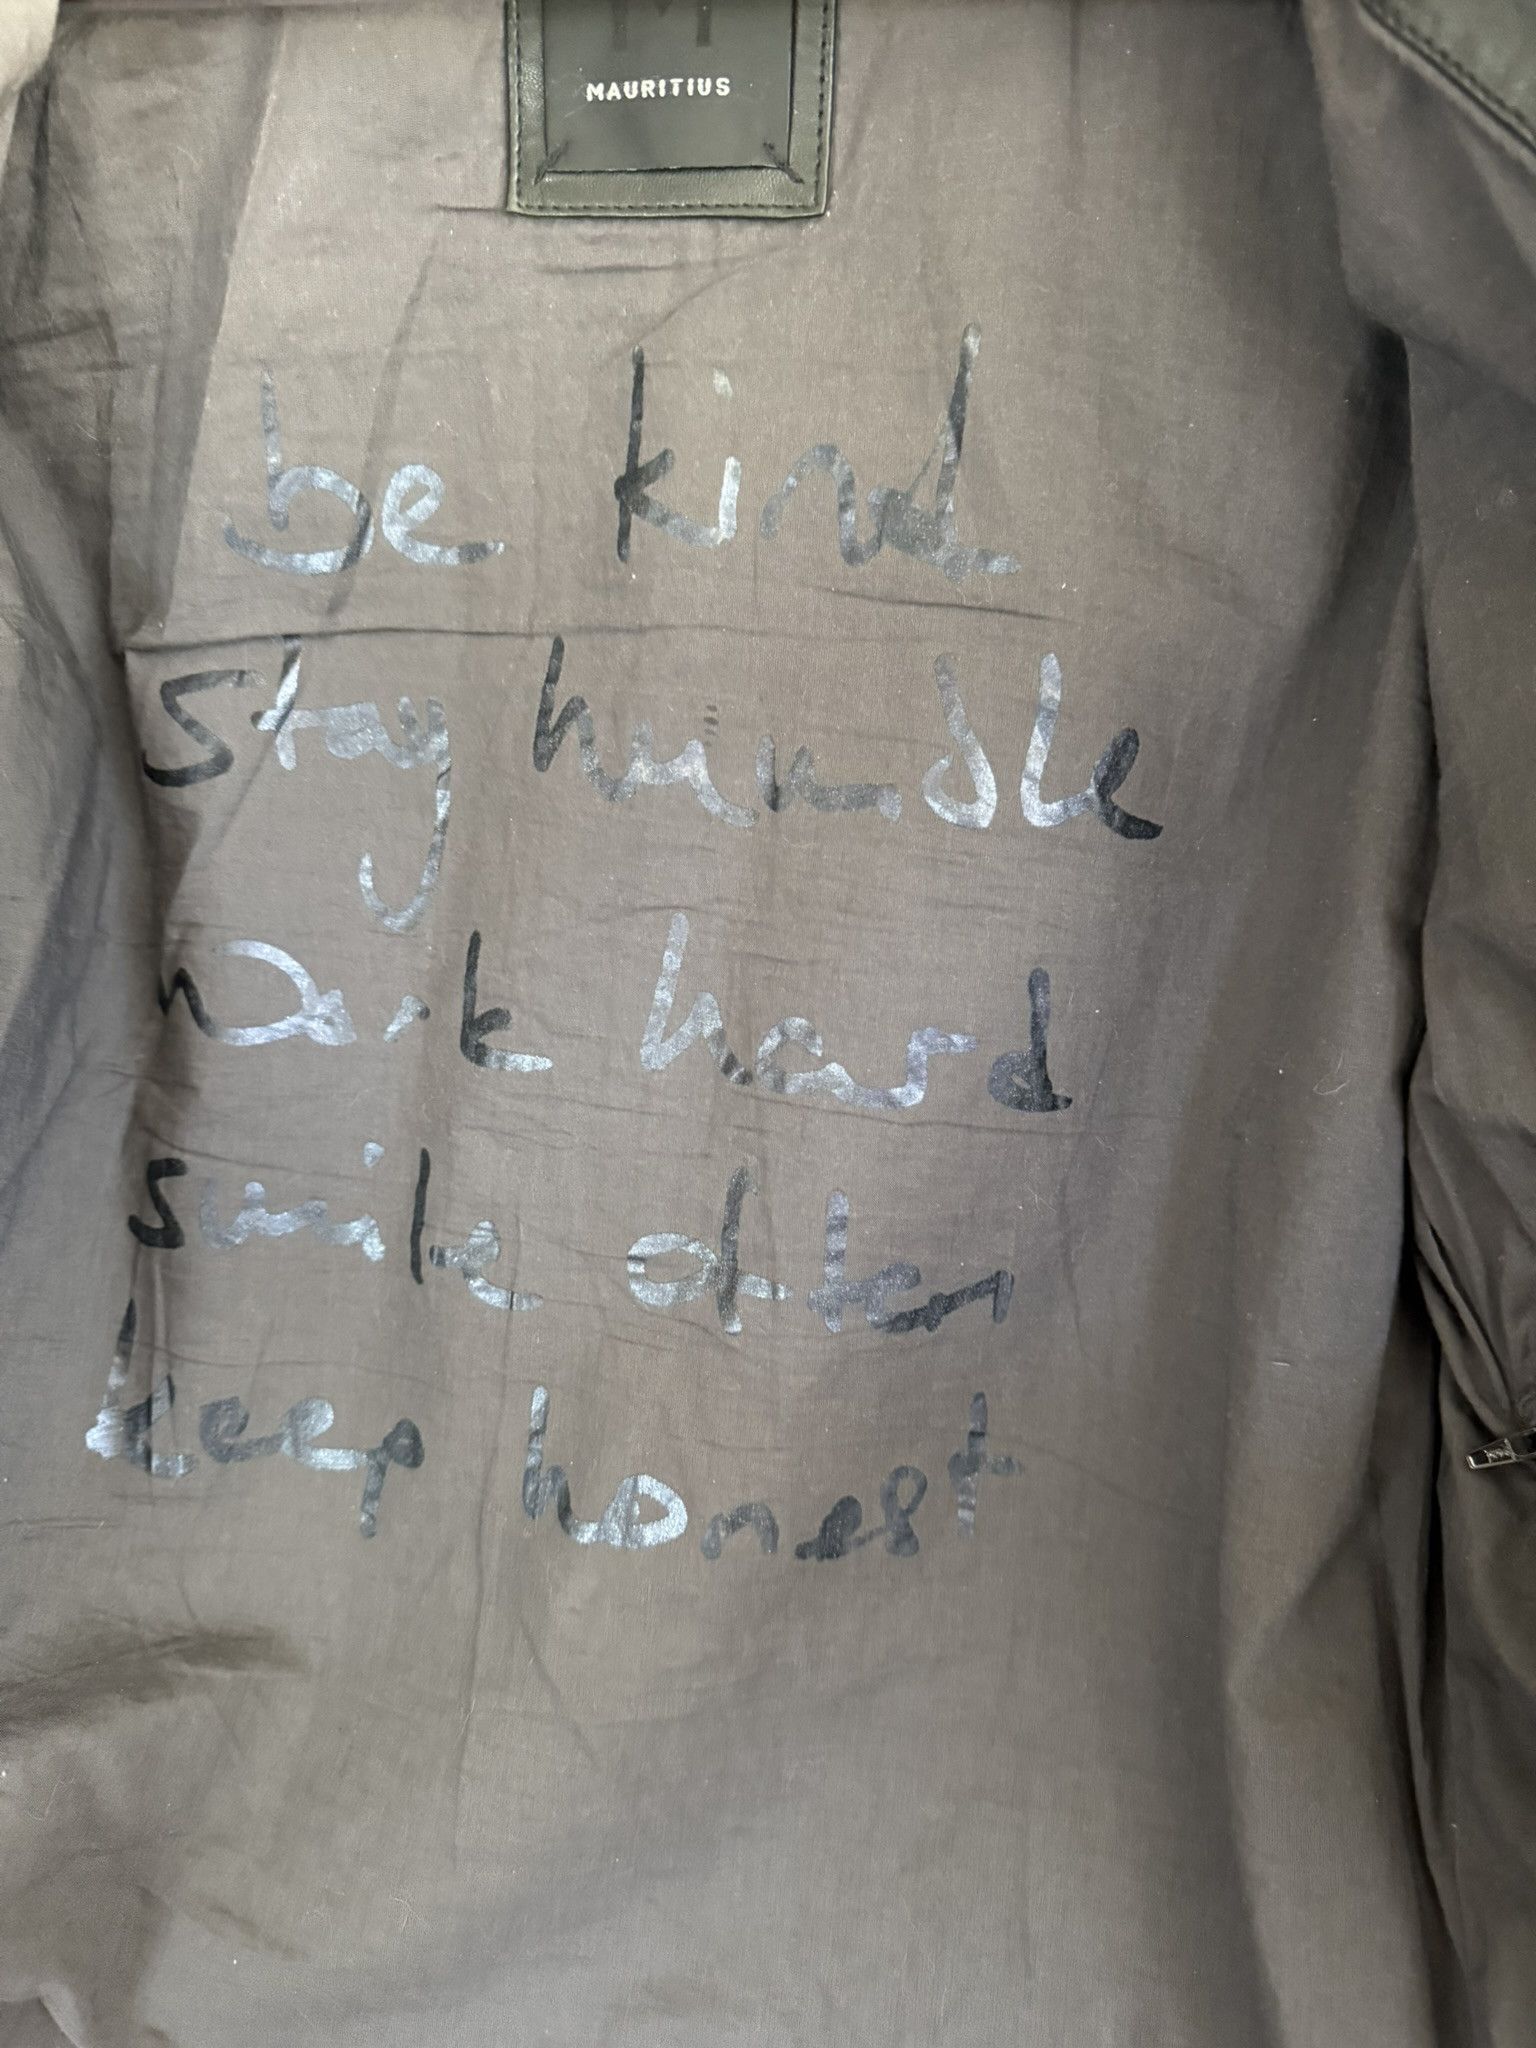 MAURITIUS
be kind
Stay humble
Work hard
smile often
keep honest